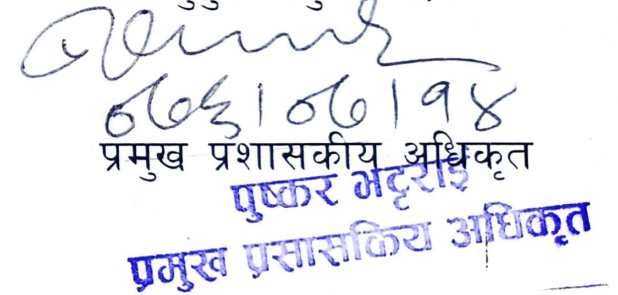 ०७६।०७।१४
प्रमुख प्रशासकीय अधिकृत
पुष्कर भट्टराई
प्रमुख प्रसासकिय अधिकृत